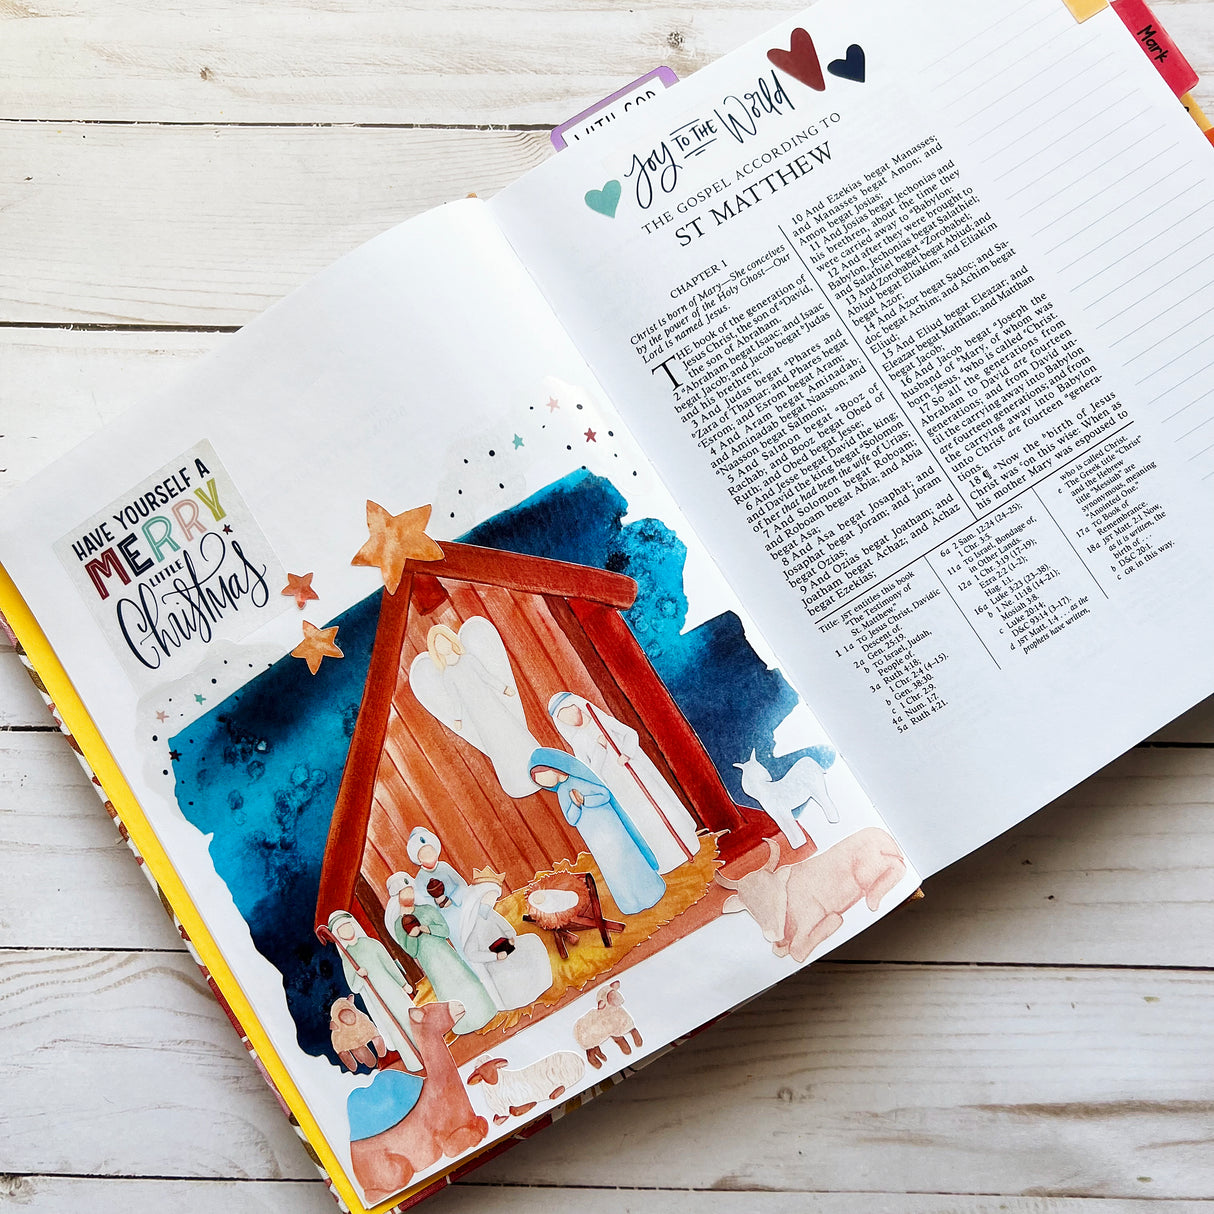 HAVE YOURSELF A
MERRY
LITTLE
Christmas
WITH GOD
Mark
Joy TO THE World
THE GOSPEL ACCORDING TO
ST MATTHEW
CHAPTER 1
Christ is born of Mary—She conceives
by the power of the Holy Ghost—Our
Lord is named Jesus.
THE book of the generation of
Jesus Christ, the son of David,
the son of Abraham.
2 Abraham begat Isaac; and Isaac
begat Jacob; and Jacob begat Judas
and his brethren;
3 And Judas begat Phares and
Zara of Thamar; and Phares begat
Esrom; and Esrom begat Aram;
4 And Aram begat Aminadab;
and Aminadab begat Naasson; and
Naasson begat Salmon;
5 And Salmon begat Booz of
Rachab; and Booz begat Obed of
Ruth; and Obed begat Jesse;
6 And Jesse begat David the king;
and David the king begat Solomon
of her that had been the wife of Urias;
7 And Solomon begat Roboam;
and Roboam begat Abia; and Abia
begat Asa;
8 And Asa begat Josaphat; and
Josaphat begat Joram; and Joram
begat Ozias;
9 And Ozias begat Joatham; and
Joatham begat Achaz; and Achaz
begat Ezekias;
10 And Ezekias begat Manasses;
and Manasses begat Amon; and
Amon begat Josias;
11 And Josias begat Jechonias and
his brethren, about the time they
were carried away to Babylon:
12 And after they were brought to
Babylon, Jechonias begat Salathiel;
and Salathiel begat Zorobabel;
13 And Zorobabel begat Abiud; and
Abiud begat Eliakim; and Eliakim
begat Azor;
14 And Azor begat Sadoc; and Sa-
doc begat Achim; and Achim begat
Eliud;
15 And Eliud begat Eleazar; and
Eleazar begat Matthan; and Matthan
begat Jacob;
16 And Jacob begat Joseph the
husband of Mary, of whom was
born Jesus, who is called Christ.
17 So all the generations from
Abraham to David are fourteen
generations; and from David un-
til the carrying away into Babylon
are fourteen generations; and from
the carrying away into Babylon
unto Christ are fourteen genera-
18 ¶ Now the birth of Jesus
Christ was on this wise: When as
his mother Mary was espoused to
Title: JST entitles this book
"The Testimony of
St. Matthew."
1 1a TG Jesus Christ, Davidic
Descent of.
2a Gen. 25:19.
b TG Israel, Judah,
People of.
3a Ruth 4:18;
1 Chr. 2:4 (4–15).
b Gen. 38:30.
c 1 Chr. 2:9.
4a Num. 1:7.
5a Ruth 4:21.
6a 2 Sam. 12:24 (24–25);
1 Chr. 3:5.
11a TG Israel, Bondage of,
in Other Lands.
12a 1 Chr. 3:19 (17–19);
Ezra 2:2 (1–2);
Hag. 1:1.
16a Luke 3:23 (23–38).
b 1 Ne. 11:18 (14–21);
Mosiah 3:8.
c Luke 20:14;
D&C 93:14 (3–17).
d JST Matt. 1:4 . . . as the
prophets have written,
who is called Christ.
e The Greek title "Christ"
and the Hebrew
title "Messiah" are
synonymous, meaning
"Anointed One."
17a TG Book of
Remembrance.
18a JST Matt. 2:1 Now,
as it is written, the
birth of . . .
b D&C 20:1.
c OR in this way.